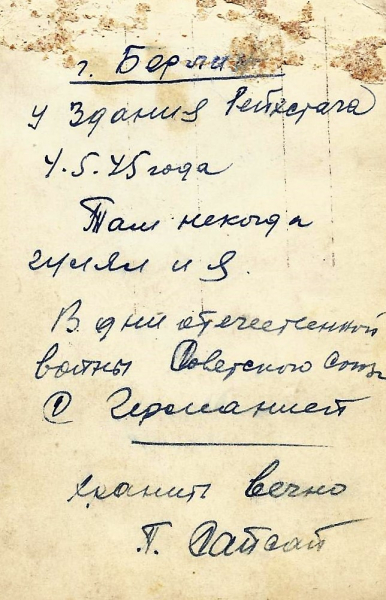 г. Берлин
у здания Рейхстага
4.5.45 года
Там некогда
гулял и я.
В дни отечественной
войны Советского Союза
с Германией
хранить вечно
П.